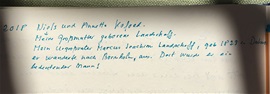 2018 Niels und Annette Volper.
Meine Großmutter geborene Landschoff.
Mein Urgroßvater Marcus Joachim Landschoff, geb 1823
er wanderte nach Bornholm, aus. Dort wurde er ein
bedeutender Mann!